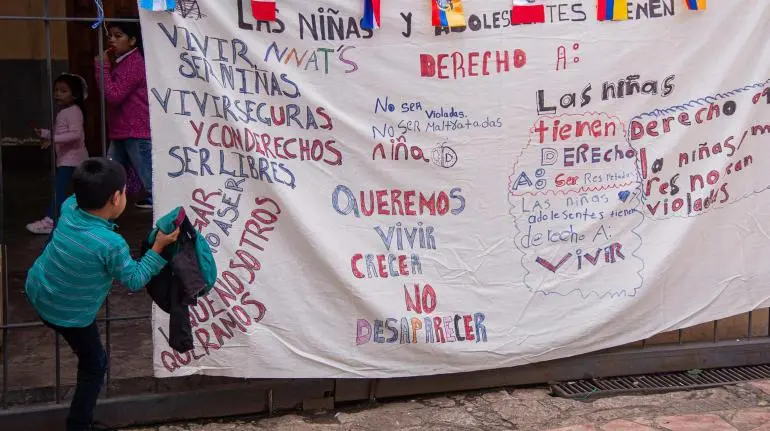 Las niñas y adolescentes tienen
DERECHO A:
VIVIR, NNAT'S
SER NIÑAS,
VIVIR SEGURAS
Y CON DERECHOS
SER LIBRES
NO SER
QUE NOSOTROS
QUERAMOS
No ser violadas.
No ser Maltratadas
niña
QUEREMOS
VIVIR
CRECER
NO
DESAPARECER
Las niñas
tienen
DERECHO
A: Ser Respetadas
Las niñas
adolescentes tienen
derecho A:
VIVIR
Derecho
la niñas/
res no sean
violadas